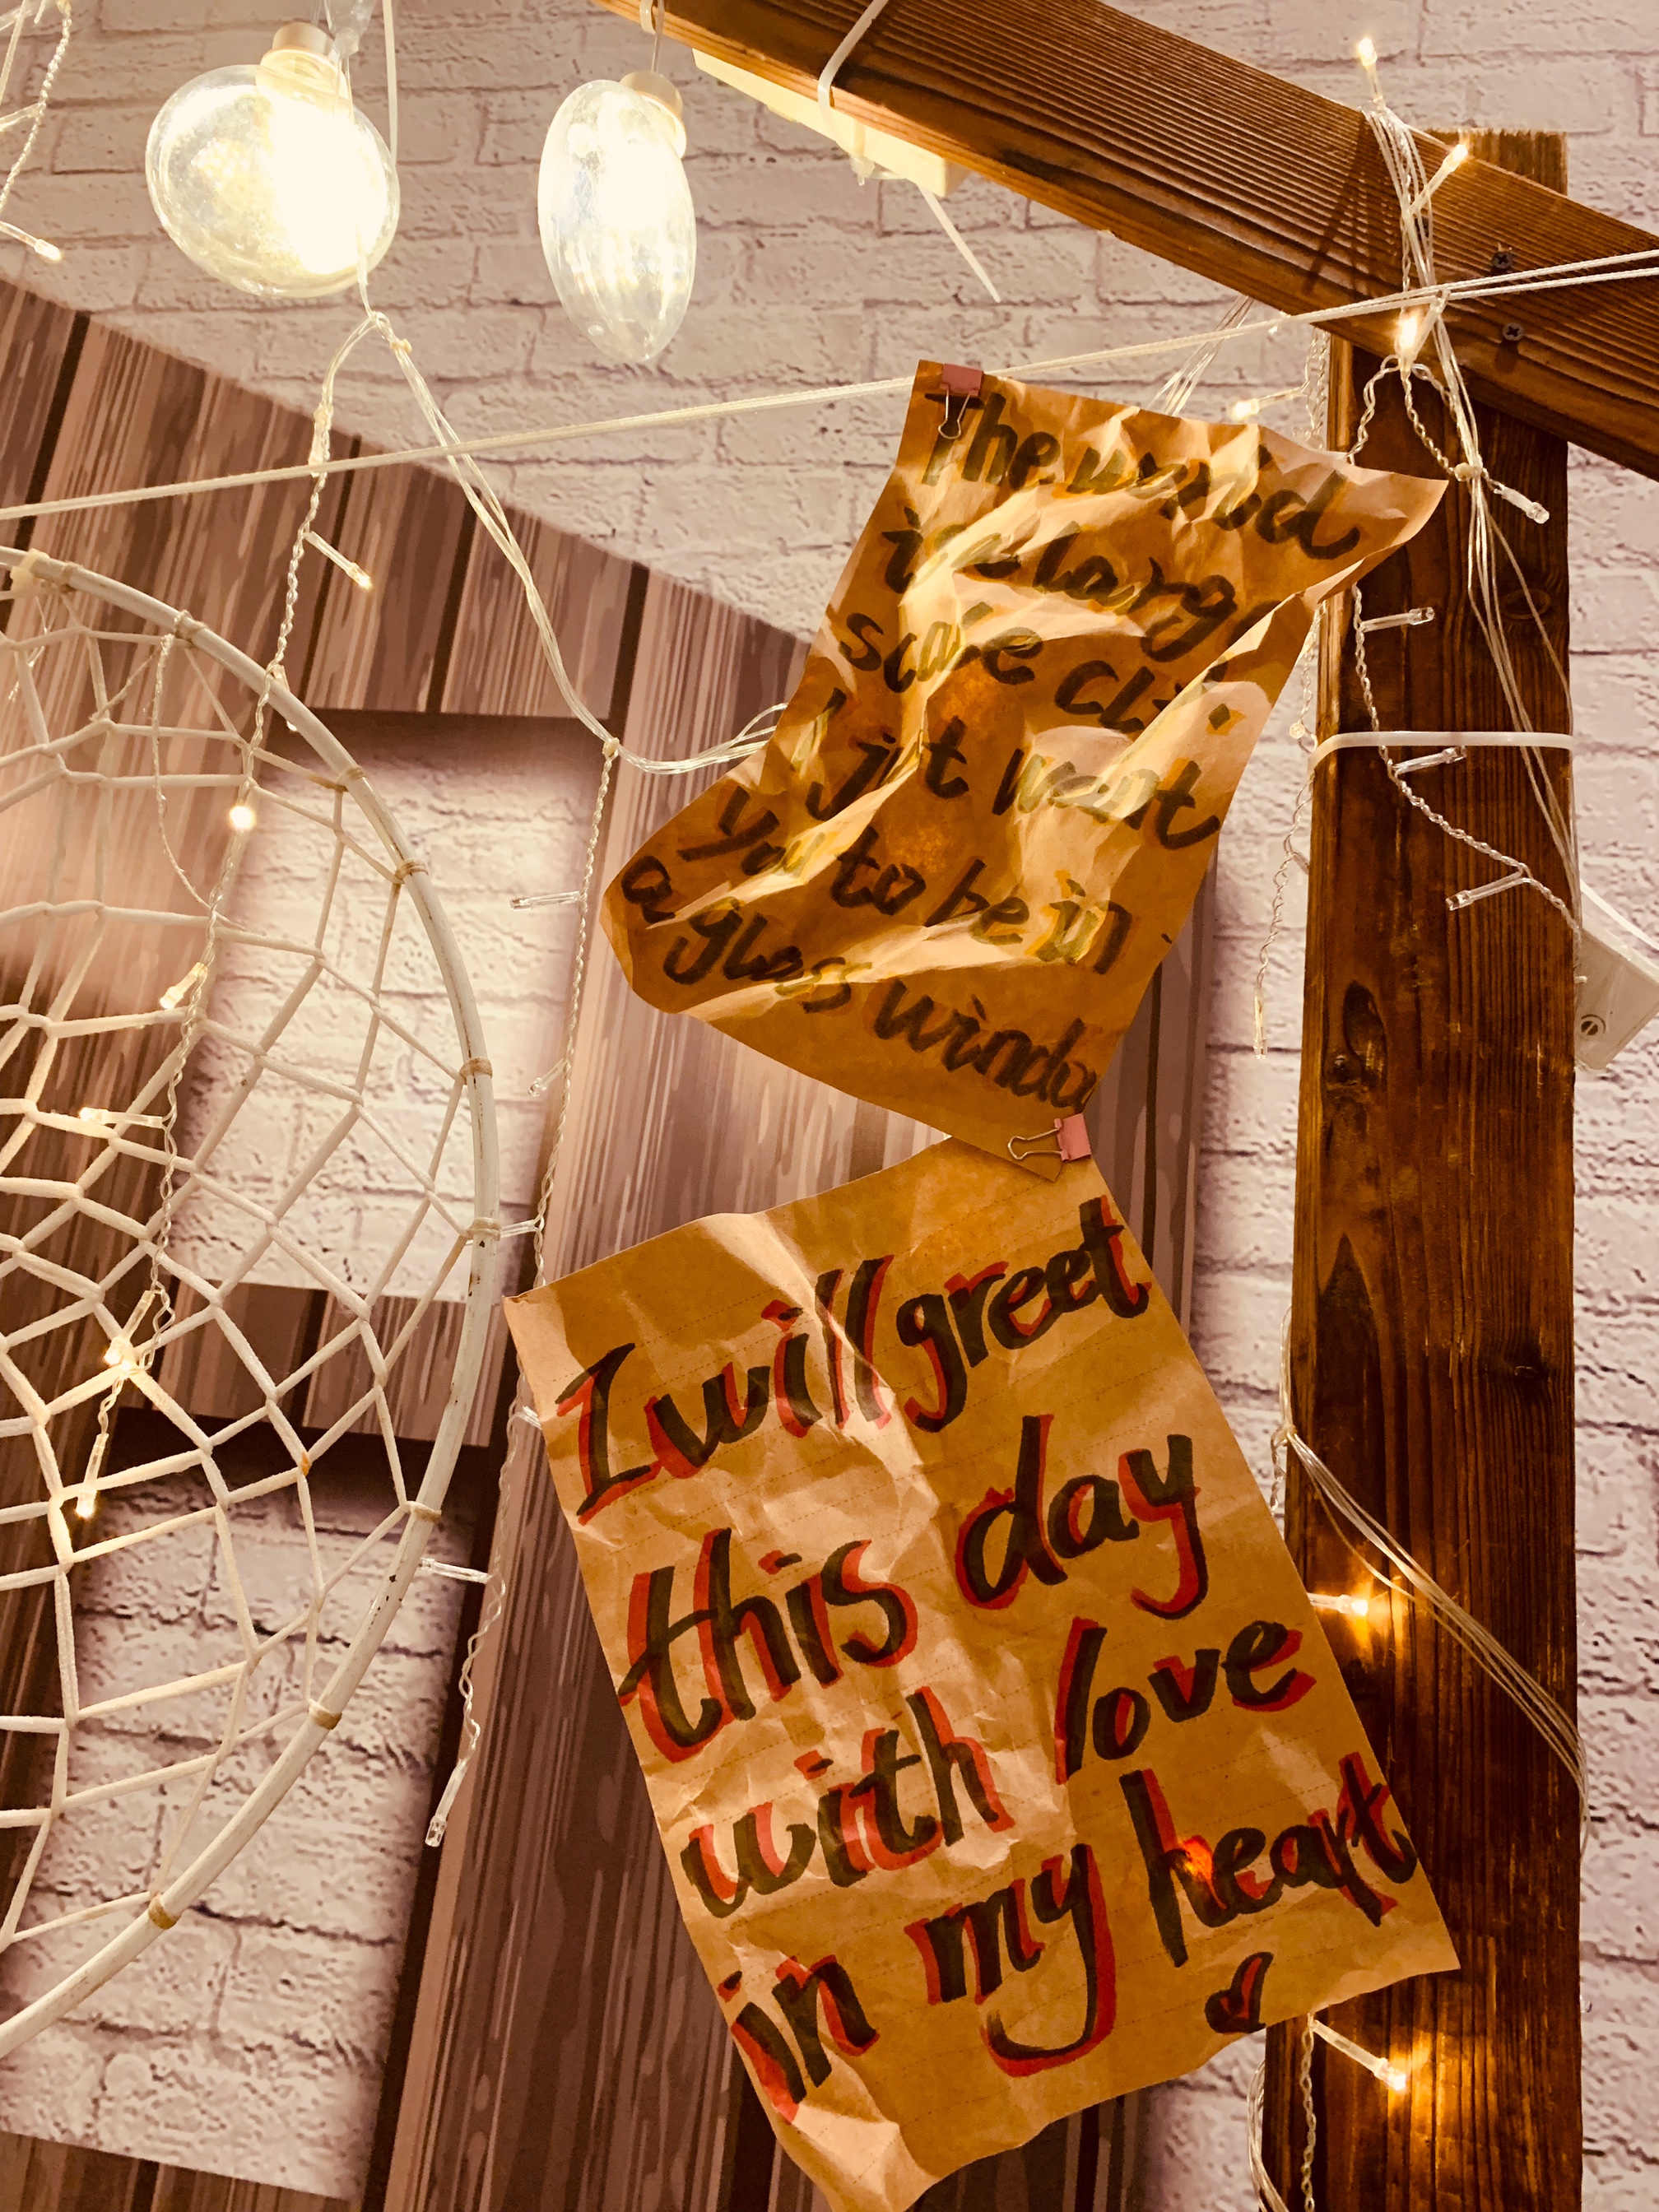 The world
is a large
scale
I just want
you to be in
a glass window
I will greet
this day
with love
in my heart